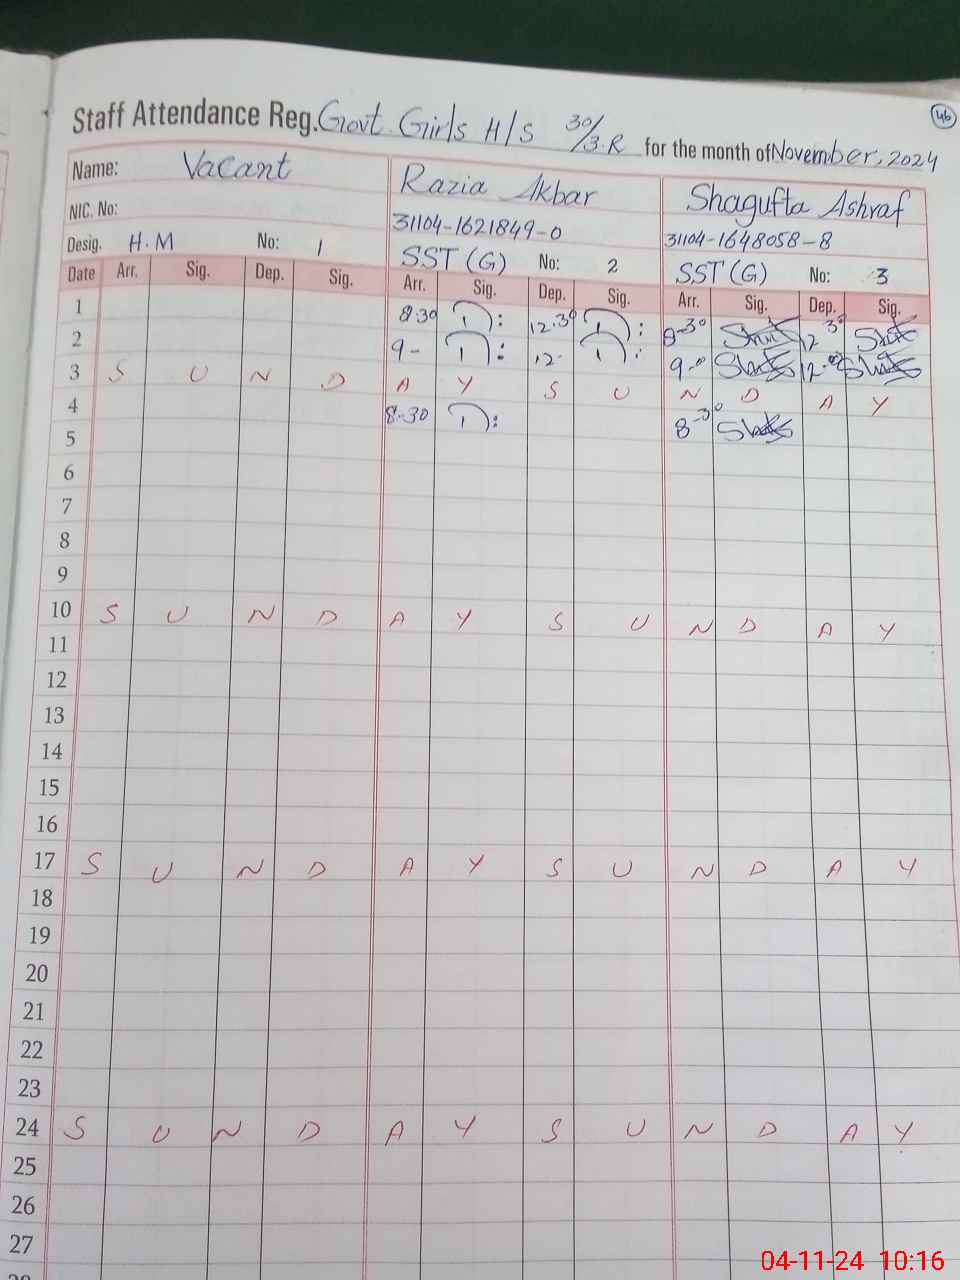 46
Staff Attendance Reg. Govt. Girls H/S 30/3.R for the month of November, 2024
Name: Vacant Razia Akbar Shagufta Ashraf
NIC. No: 31104-1621849-0 31104-1648058-8
Desig. H.M No: 1 SST (G) No: 2 SST (G) No: 3
Date Arr. Sig. Dep. Sig. Arr. Sig. Dep. Sig. Arr. Sig. Dep. Sig.
1 8-30 12-30 8-30 12-30
2 9- 12- 9-0 12-0
3 S U N D A Y S U N D A Y
4 8-30 8-30
5
6
7
8
9
10 S U N D A Y S U N D A Y
11
12
13
14
15
16
17 S U N D A Y S U N D A Y
18
19
20
21
22
23
24 S U N D A Y S U N D A Y
25
26
27
04-11-24 10:16